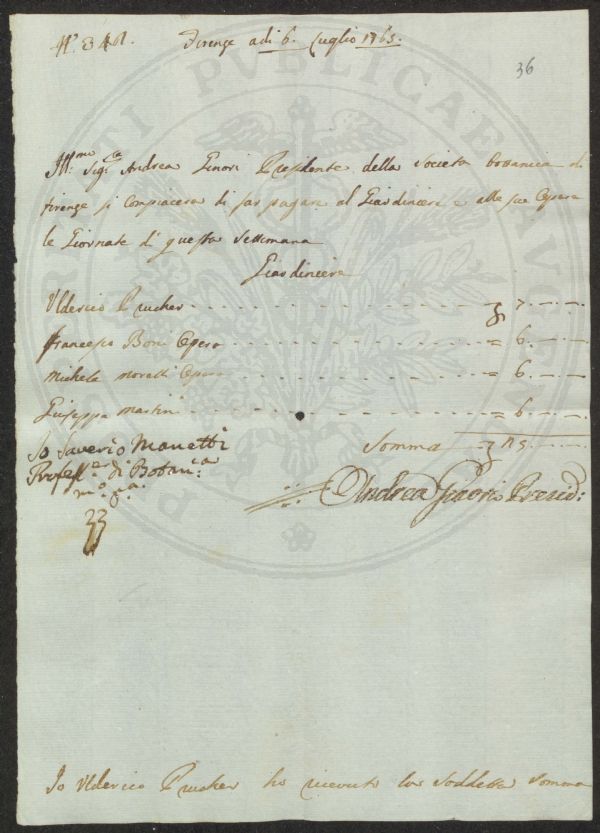 N.º 341. Firenze adi 6. Luglio 1765.
36
Ill:mo Sig:re Andrea Ginori Presidente della Società Bottanica di
firenze si compiacera di far pagare al Giardiniere e alle sue Opere
le Giornate di questa Settimana
Giardiniere
Ulderico Prucher 7
francesco Boni Opera = 6.
Michele Moratti Opera = 6.
Giuseppe Martini = 6.
Io Saverio Manetti Somma 25.
Profess:re di Botan:ca Andrea Ginori Presid:
m:o p:a
Io Ulderico Prucher ho riceuto la Soddetta Somma
PROSPERITATI PUBLICAE AUGENDAE